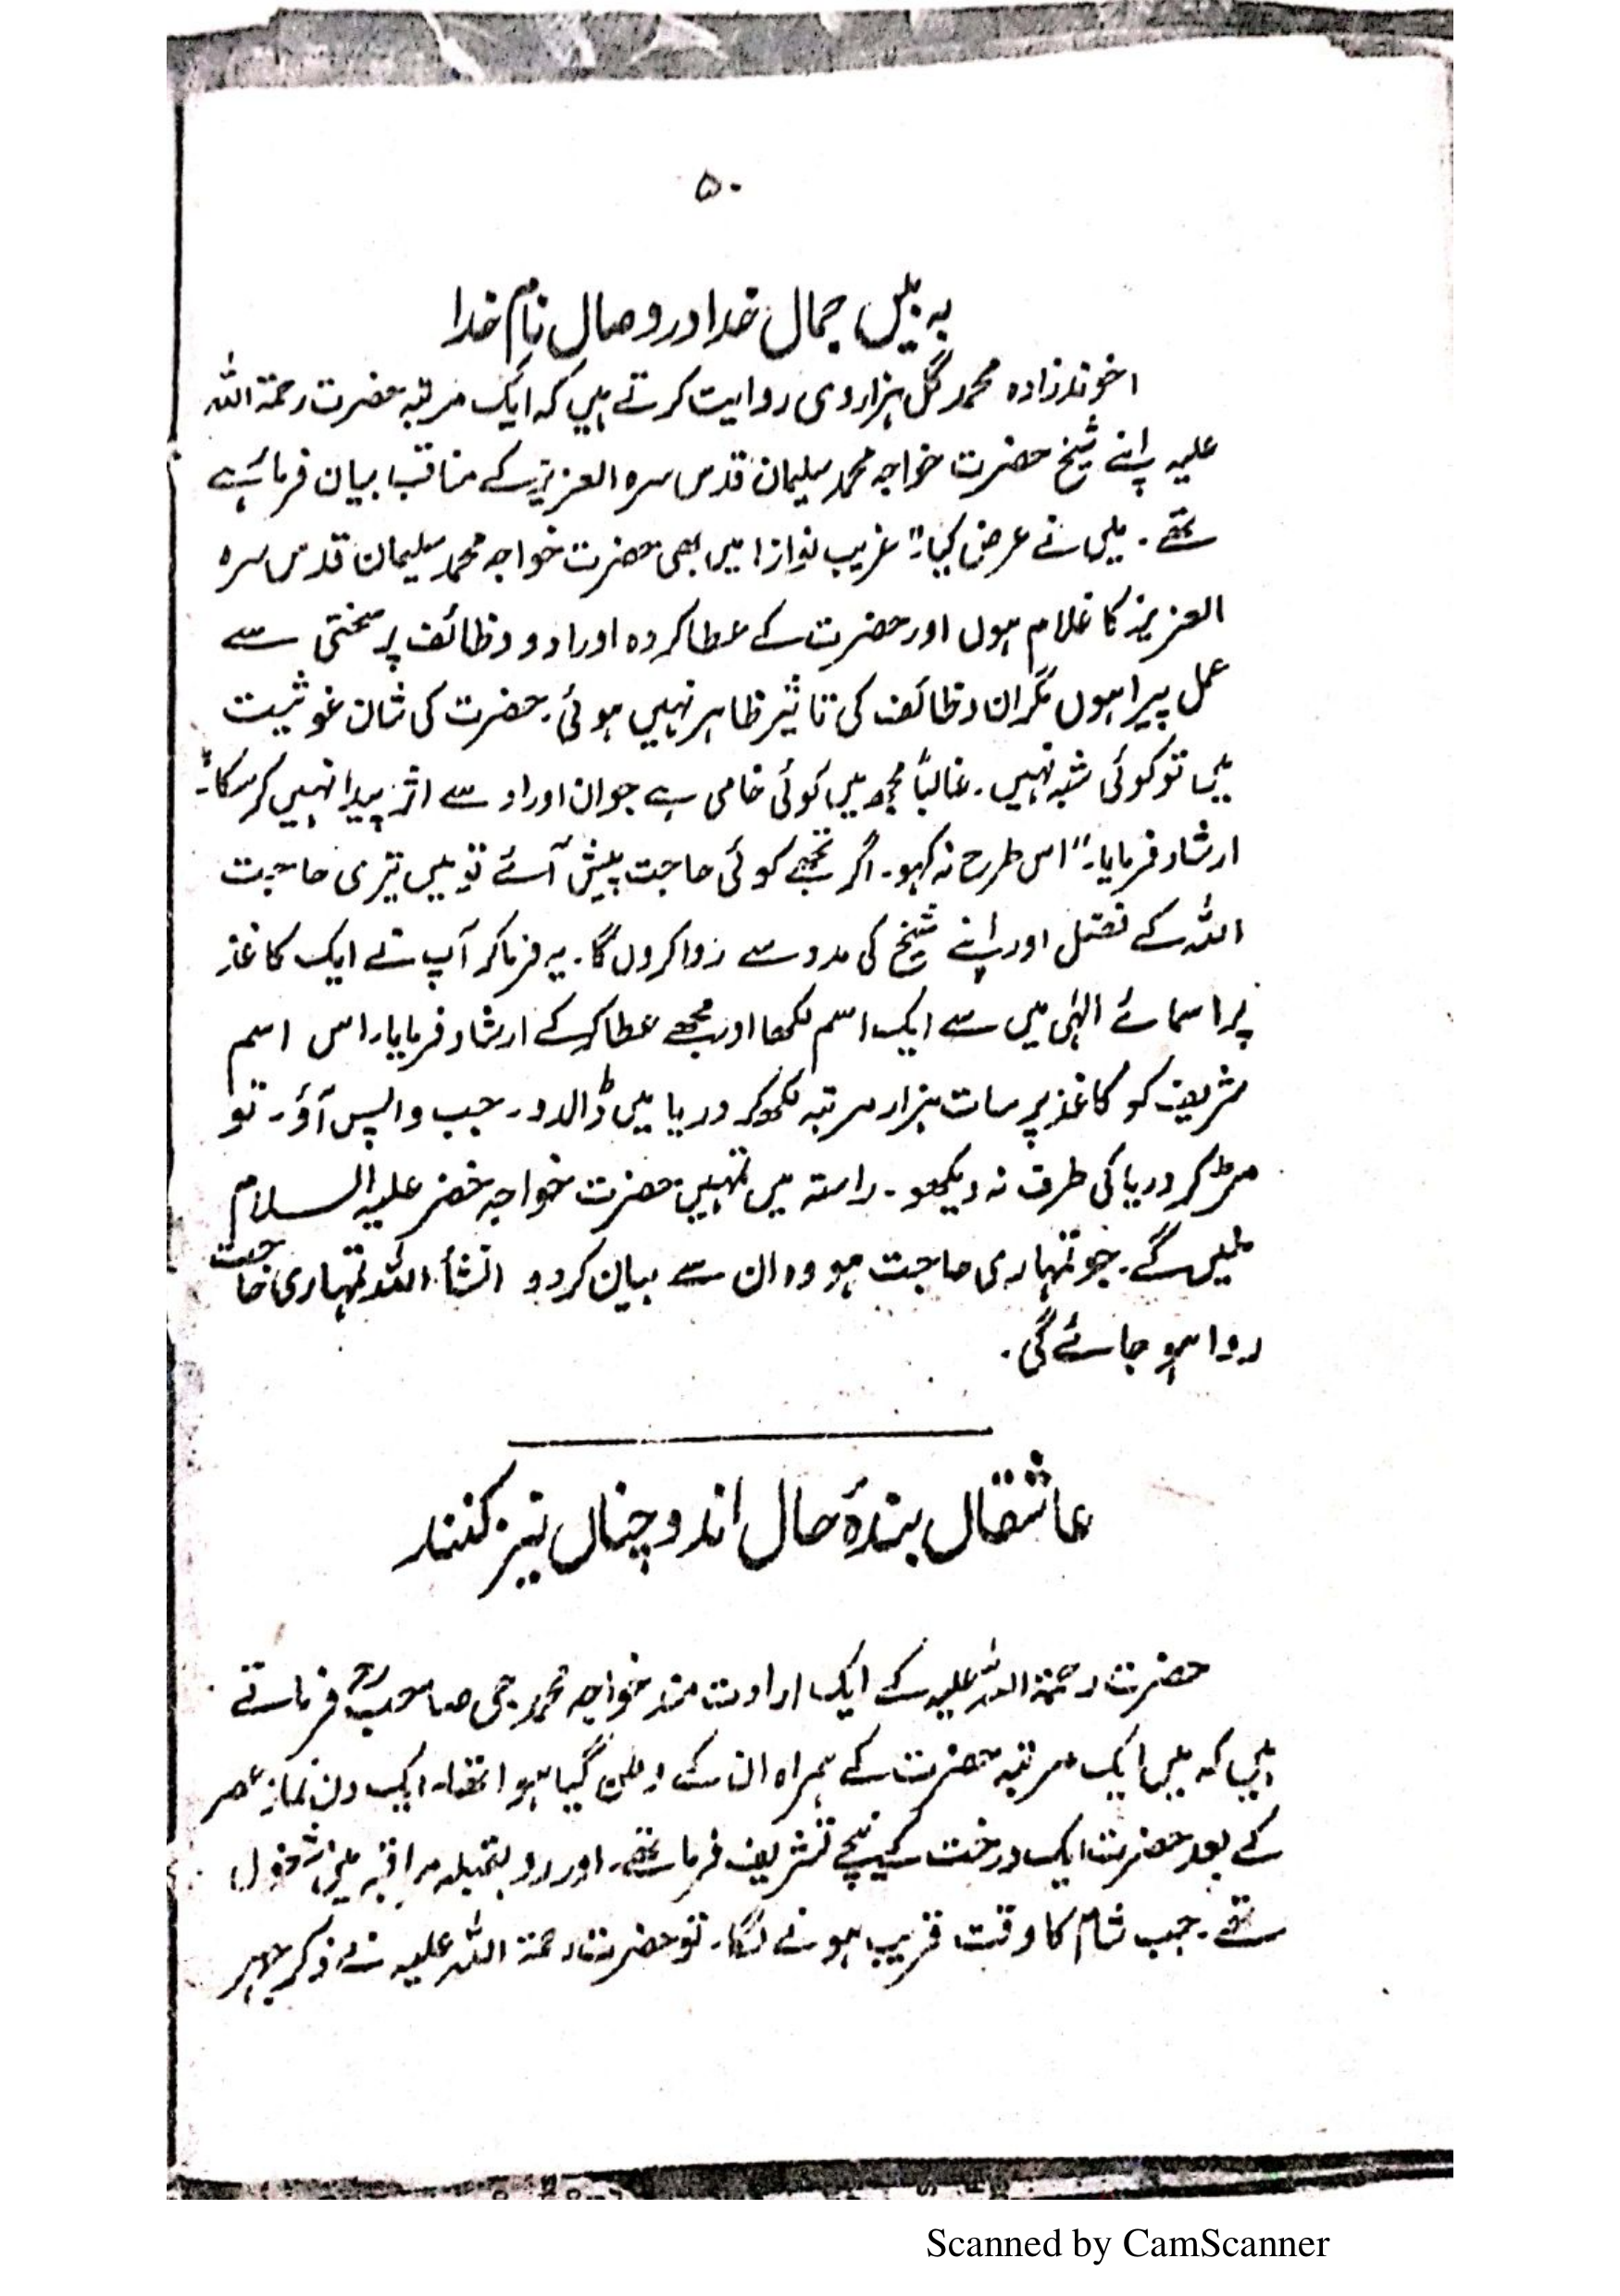 ۵۰
بہ بیں جمال خدا در وصال نام خدا
اخوندزادہ محمد گل ہزاروی روایت کرتے ہیں کہ ایک مرتبہ حضرت رحمۃ اللہ
علیہ اپنے شیخ حضرت خواجہ محمد سلیمان قدس سرہ العزیز کے مناقب بیان فرمائے
تھے۔ میں نے عرض کیا:" غریب نواز! میں بھی حضرت خواجہ محمد سلیمان قدس سرہ
العزیز کا غلام ہوں اور حضرت کے عطا کردہ اوراد و وظائف پر سختی سے
عمل پیرا ہوں مگر ان وظائف کی تاثیر ظاہر نہیں ہوئی۔ حضرت کی شان غوثیت
میں تو کوئی شبہ نہیں۔ غالباً مجھ میں کوئی خامی ہے جو ان اوراد سے اثر پیدا نہیں کر سکا:"
ارشاد فرمایا:" اس طرح نہ کہو۔ اگر تجھے کوئی حاجت پیش آئے تو میں تیری حاجت
اللہ کے فضل اور اپنے شیخ کی مدد سے روا کروں گا۔ یہ فرما کر آپ نے ایک کاغذ
پر اسمائے الہٰی میں سے ایک اسم لکھا اور مجھے عطا کر کے ارشاد فرمایا، اس اسم
شریف کو کاغذ پر سات ہزار مرتبہ لکھ کر دریا میں ڈالدو۔ جب واپس آؤ۔ تو
مڑ کر دریا کی طرف نہ دیکھو۔ راستہ میں تمہیں حضرت خواجہ خضر علیہ السلام
ملیں گے۔ جو تمہاری حاجت ہو وہ ان سے بیان کر دو انشأ اللہ تمہاری حاجت
روا ہو جائے گی۔
عاشقاں بندۂ حال اند و چناں نیز کنند
حضرت رحمۃ اللہ علیہ کے ایک ارادت مند خواجہ محمد جی صاحبؒ فرماتے
ہیں کہ میں ایک مرتبہ حضرت کے ہمراہ ان کے وطن گیا ہوا تھا۔ ایک دن نماز عصر
کے بعد حضرت ایک درخت کے نیچے تشریف فرما تھے۔ اور رو بقبلہ مراقبہ میں مشغول
تھے۔ جب شام کا وقت قریب ہونے لگا۔ تو حضرت رحمۃ اللہ علیہ نے ذکر جہر
Scanned by CamScanner